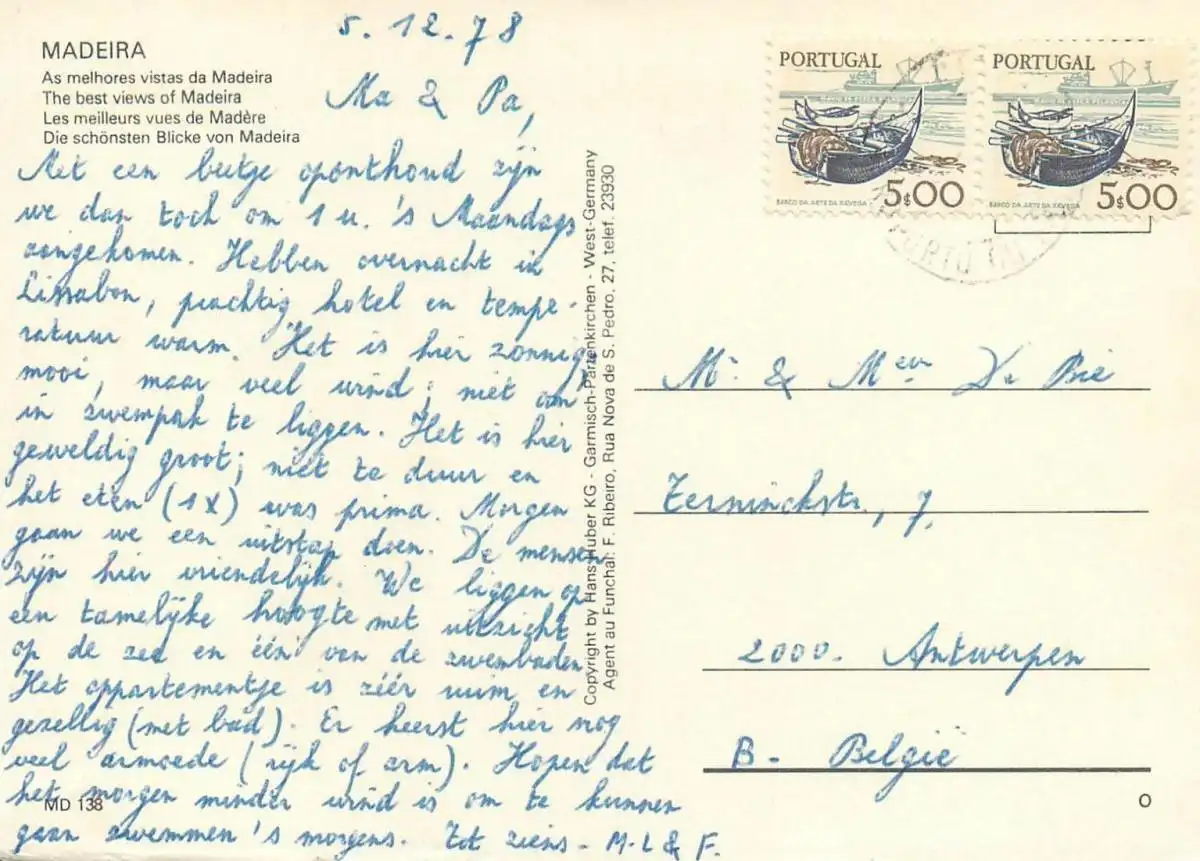 MADEIRA
As melhores vistas da Madeira
The best views of Madeira
Les meilleurs vues de Madère
Die schönsten Blicke von Madeira
5.12.78
Ma & Pa,
Met een beetje oponthoud zijn
we dan toch om 1 u. 's Maandags
aangekomen. Hebben overnacht in
Lissabon, prachtig hotel en tempe-
ratuur warm. Het is hier zonnig,
mooi, maar veel wind; niet om
in zwempak te liggen. Het is hier
geweldig groot; niet te duur en
het eten (1x) was prima. Morgen
gaan we een uitstap doen. De mensen
zijn hier vriendelijk. We liggen op
een tamelijke hoogte met uitzicht
op de zee en één van de zwembaden
Het appartementje is zéér ruim en
gezellig (met bad). Er heerst hier nog
veel armoede (rijk of arm). Hopen dat
het morgen minder wind is om te kunnen
gaan zwemmen 's morgens. Tot ziens - M-L & F.
MD 138
Copyright by Hans Huber KG - Garmisch-Partenkirchen - West-Germany
Agent au Funchal: F. Ribeiro, Rua Nova de S. Pedro, 27, telef. 23930
PORTUGAL
BARCO DA ARTE DA XAVEGA
5$00
PORTUGAL
BARCO DA ARTE DA XAVEGA
5$00
Mr & Mevr De Bie
Terninckstr., 7.
2000. Antwerpen
B- België
O